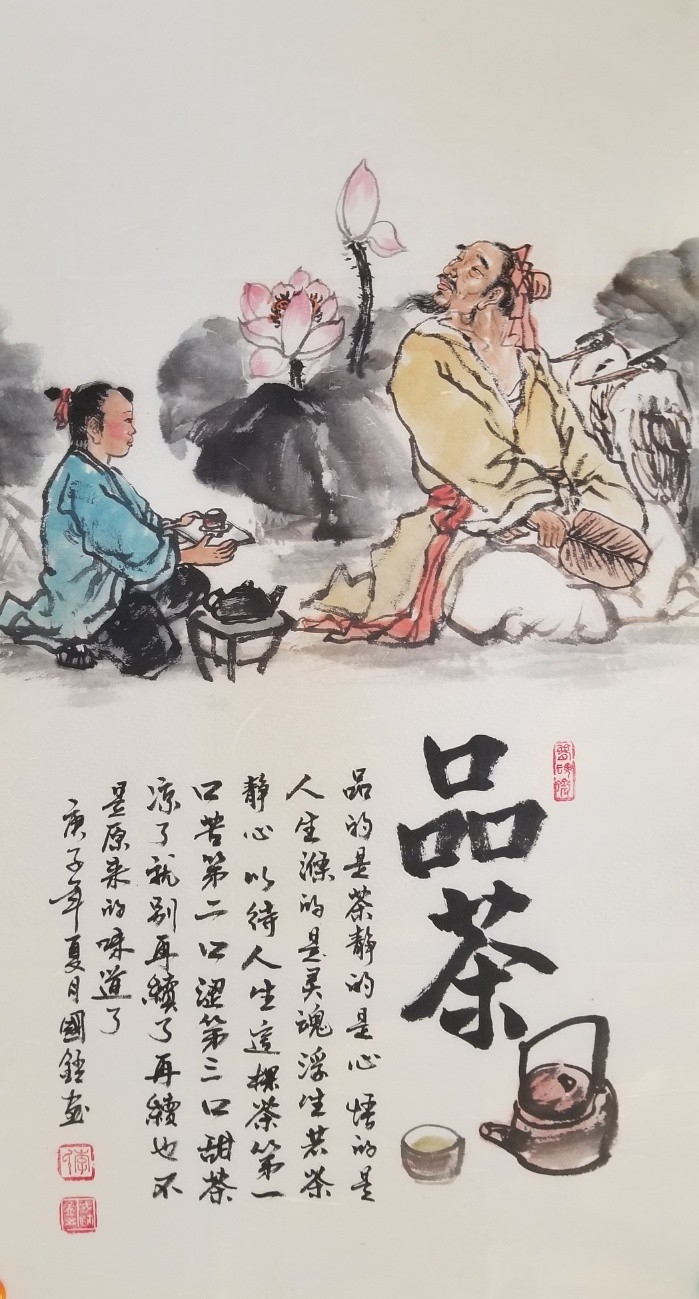 品茶
品的是茶静的是心悟的是
人生滌的是灵魂浮生若茶
静心以待人生這棵茶第一
口苦第二口涩第三口甜茶
凉了就别再續了再續也不
是原来的味道了
庚子年夏月國鈺畫